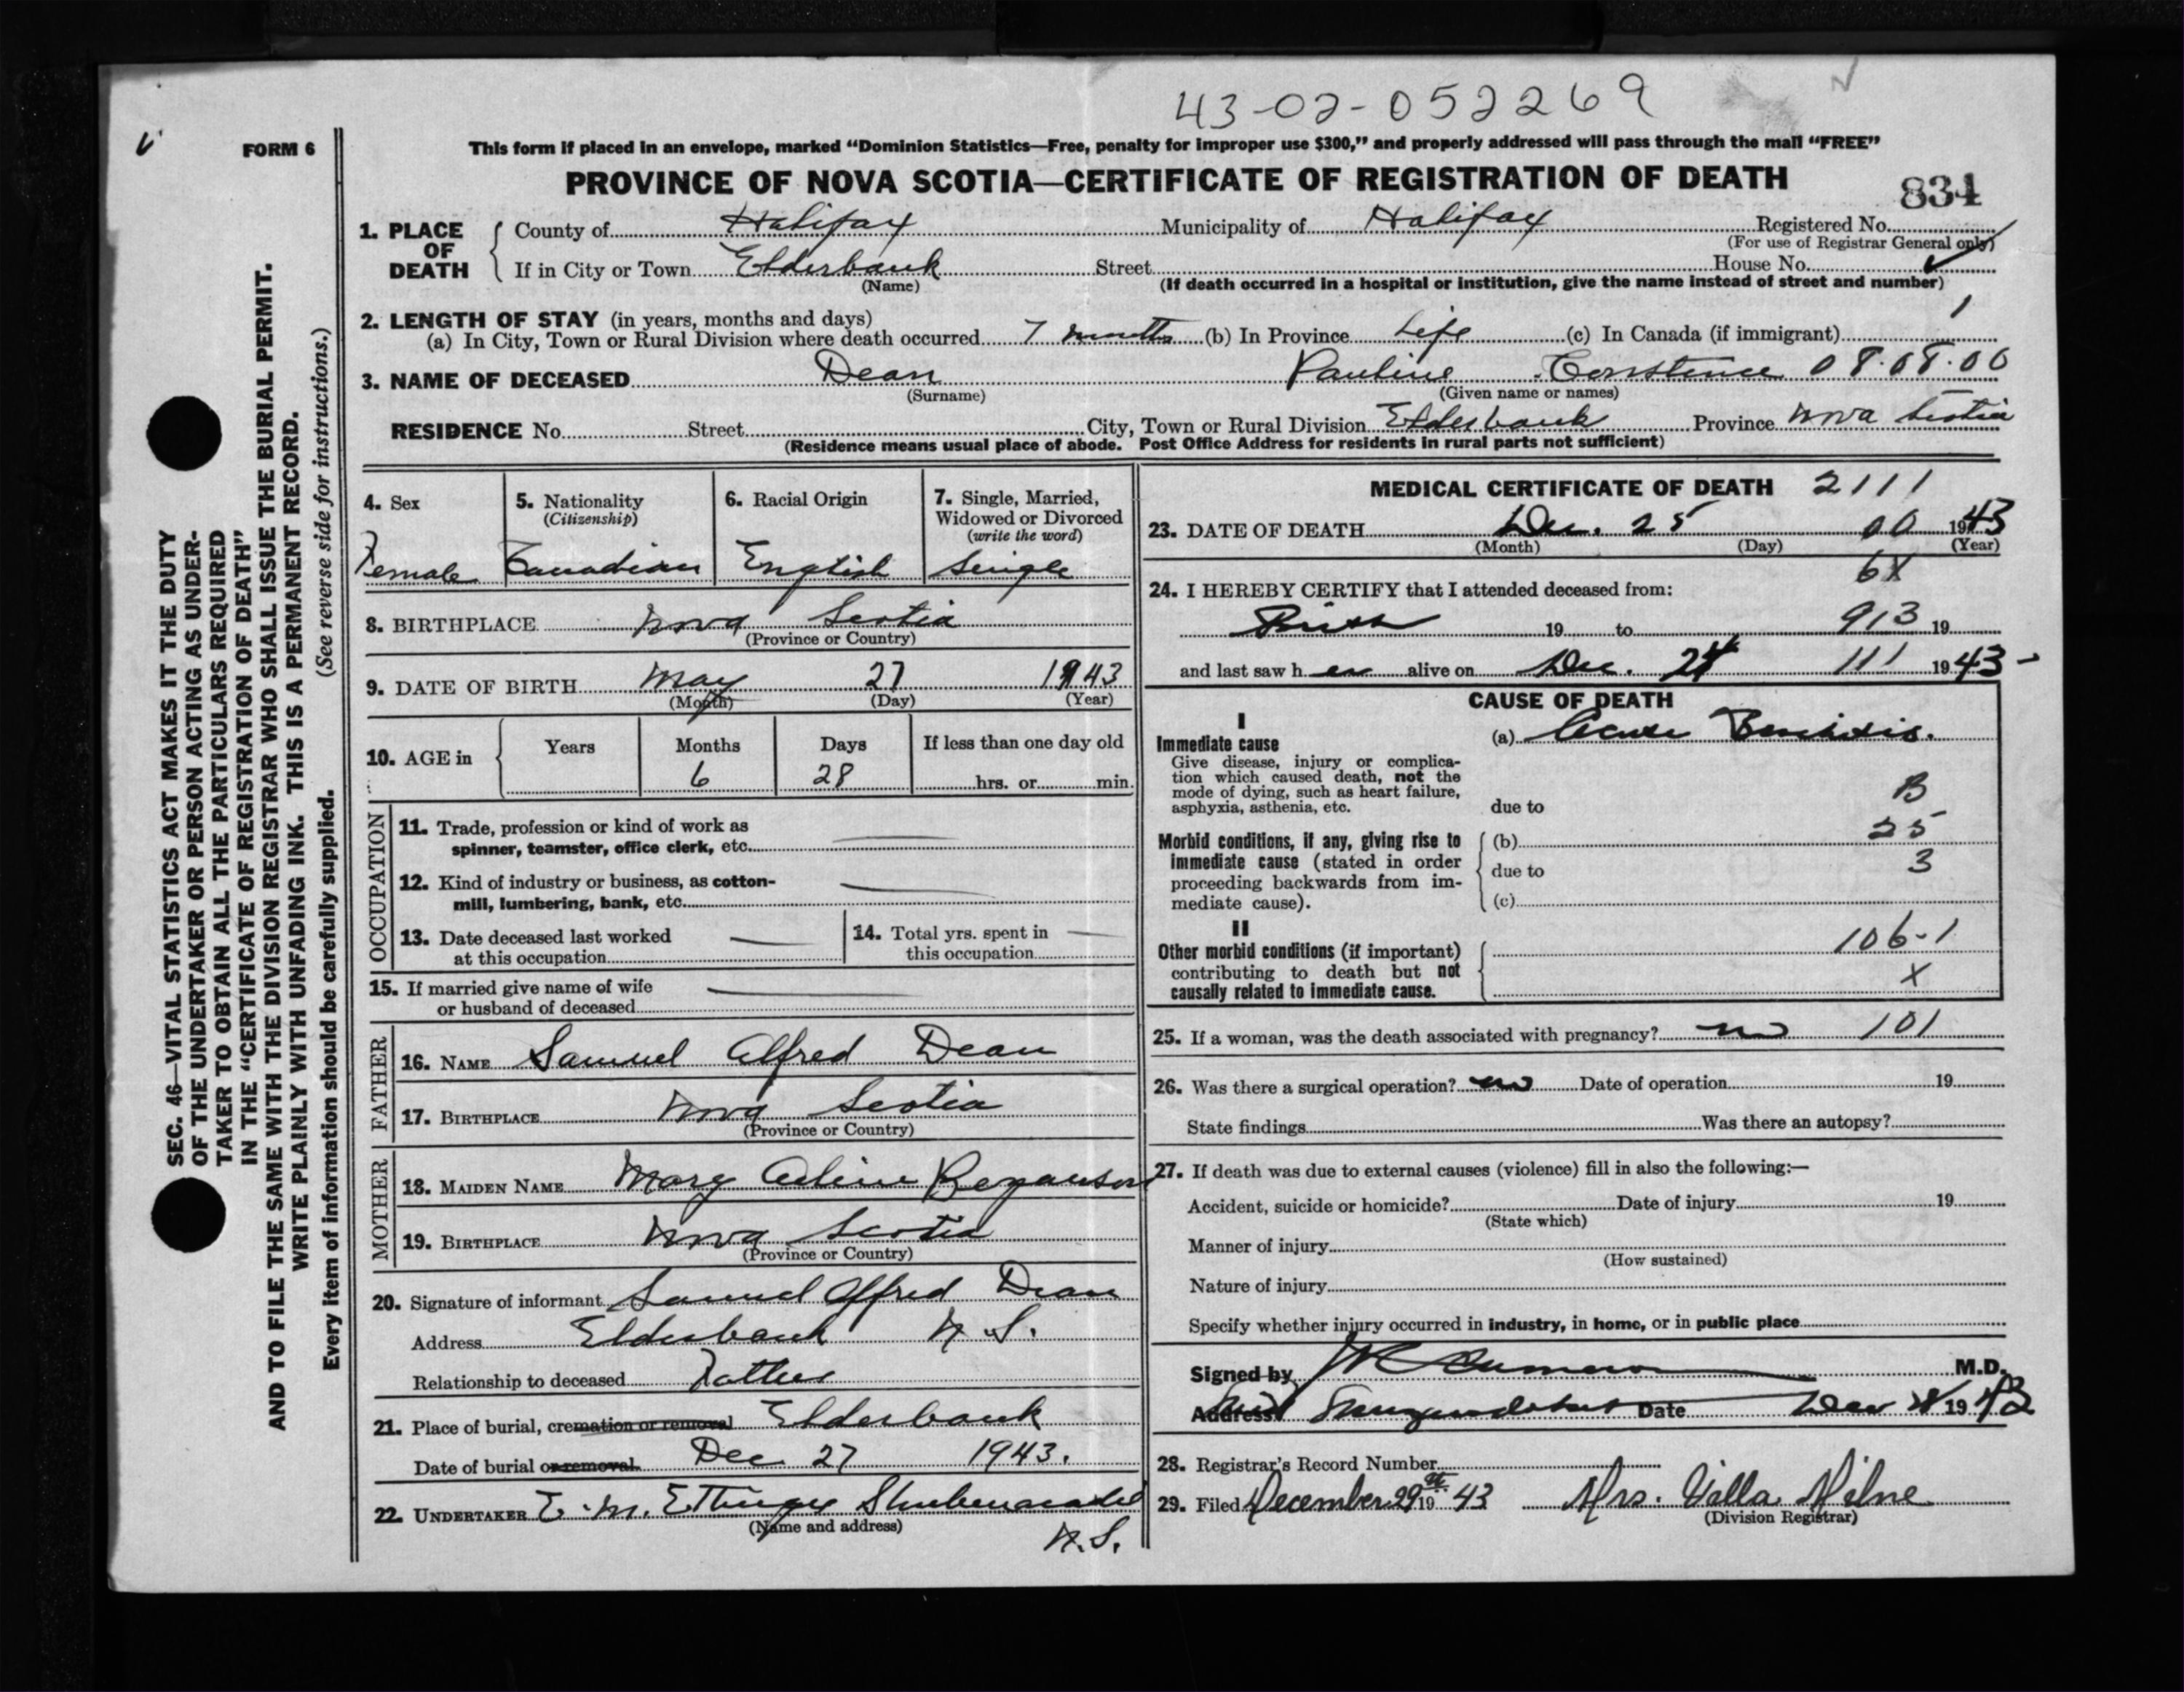 43-02-052269
FORM 6
This form if placed in an envelope, marked "Dominion Statistics—Free, penalty for improper use $300," and properly addressed will pass through the mail "FREE"
PROVINCE OF NOVA SCOTIA—CERTIFICATE OF REGISTRATION OF DEATH
834
1. PLACE OF DEATH
County of Halifax Municipality of Halifax Registered No.
(For use of Registrar General only)
If in City or Town Elderbank Street House No.
(Name) (If death occurred in a hospital or institution, give the name instead of street and number)
2. LENGTH OF STAY (in years, months and days) 1
(a) In City, Town or Rural Division where death occurred 7 months (b) In Province Life (c) In Canada (if immigrant)
3. NAME OF DECEASED Dean Pauline Constence 08.08.00
(Surname) (Given name or names)
RESIDENCE No. Street City, Town or Rural Division Elderbank Province Nova Scotia
(Residence means usual place of abode. Post Office Address for residents in rural parts not sufficient)
4. Sex
Female
5. Nationality
(Citizenship)
Canadian
6. Racial Origin
English
7. Single, Married,
Widowed or Divorced
(write the word)
Single
8. BIRTHPLACE Nova Scotia
(Province or Country)
9. DATE OF BIRTH May 27 1943
(Month) (Day) (Year)
10. AGE in
Years Months Days If less than one day old
6 28 hrs. or min.
OCCUPATION
11. Trade, profession or kind of work as
spinner, teamster, office clerk, etc.
12. Kind of industry or business, as cotton-
mill, lumbering, bank, etc.
13. Date deceased last worked
at this occupation
14. Total yrs. spent in
this occupation
15. If married give name of wife
or husband of deceased
FATHER
16. NAME Samuel Alfred Dean
17. BIRTHPLACE Nova Scotia
(Province or Country)
MOTHER
18. MAIDEN NAME Mary Adine Bezanson
19. BIRTHPLACE Nova Scotia
(Province or Country)
20. Signature of informant Samuel Alfred Dean
Address Elderbank N.S.
Relationship to deceased Father
21. Place of burial, cremation or removal Elderbank
Date of burial or removal Dec 27 1943.
22. UNDERTAKER E. M. Ettinger Shubenacadie
(Name and address)
N.S.
MEDICAL CERTIFICATE OF DEATH 2111
23. DATE OF DEATH Dec. 25 00 1943
(Month) (Day) (Year)
6X
24. I HEREBY CERTIFY that I attended deceased from:
Birth 19 to 913 19
and last saw her alive on Dec. 24 111 1943
CAUSE OF DEATH
I
Immediate cause
Give disease, injury or complica-
tion which caused death, not the
mode of dying, such as heart failure,
asphyxia, asthenia, etc.
(a) Acute Bronchitis.
B
due to
Morbid conditions, if any, giving rise to
immediate cause (stated in order
proceeding backwards from im-
mediate cause).
(b) 25
due to 3
(c)
II
Other morbid conditions (if important)
contributing to death but not
causally related to immediate cause.
106-1
X
25. If a woman, was the death associated with pregnancy? no 101
26. Was there a surgical operation? no Date of operation 19
State findings Was there an autopsy?
27. If death was due to external causes (violence) fill in also the following:—
Accident, suicide or homicide? Date of injury 19
(State which)
Manner of injury
(How sustained)
Nature of injury
Specify whether injury occurred in industry, in home, or in public place
Signed by M.D.
Address Date 1943
28. Registrar's Record Number
29. Filed December 29th 1943 Mrs. Villa Milne
(Division Registrar)
SEC. 46—VITAL STATISTICS ACT MAKES IT THE DUTY
OF THE UNDERTAKER OR PERSON ACTING AS UNDER-
TAKER TO OBTAIN ALL THE PARTICULARS REQUIRED
IN THE "CERTIFICATE OF REGISTRATION OF DEATH"
AND TO FILE THE SAME WITH THE DIVISION REGISTRAR WHO SHALL ISSUE THE BURIAL PERMIT.
WRITE PLAINLY WITH UNFADING INK. THIS IS A PERMANENT RECORD.
Every item of information should be carefully supplied. (See reverse side for instructions.)